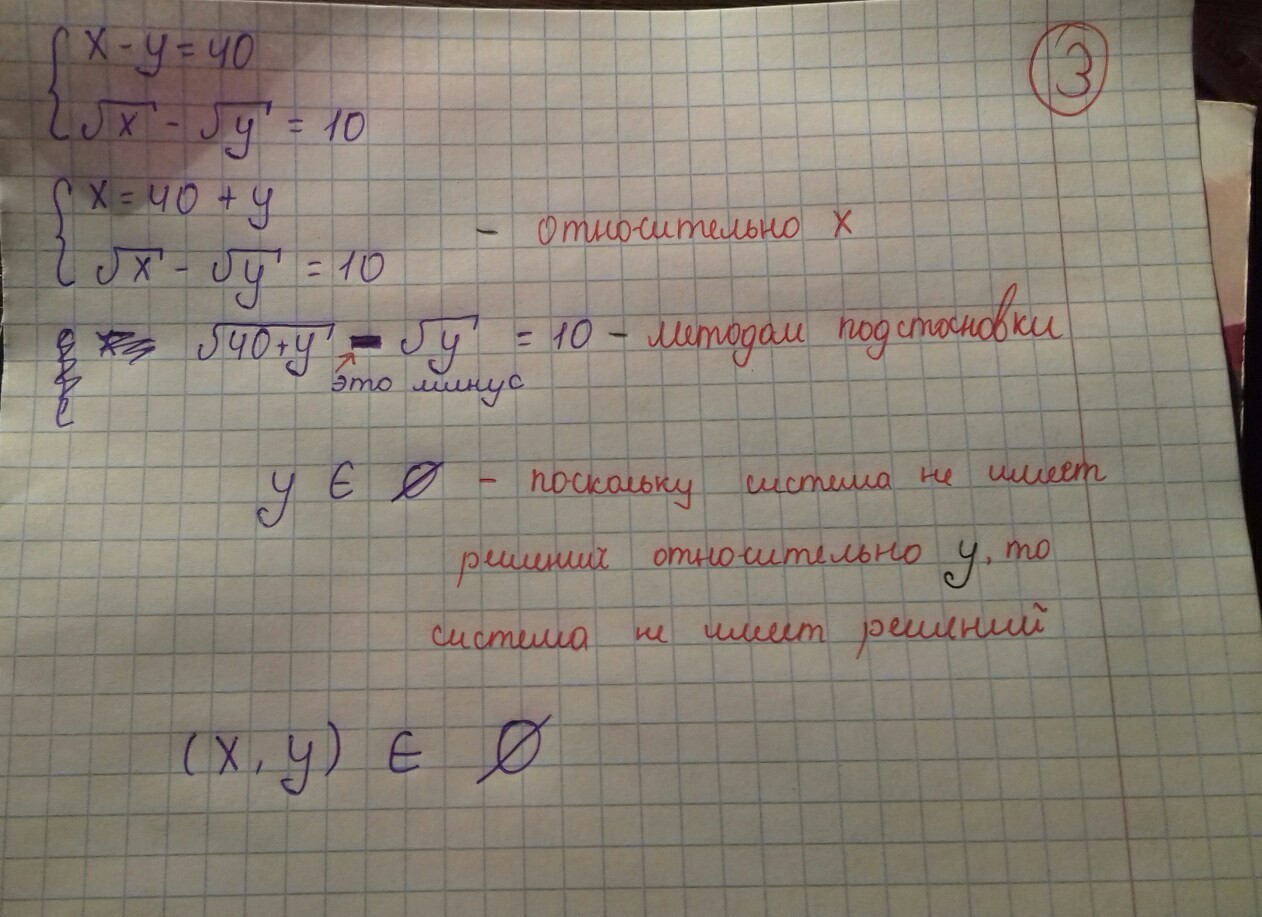 x - y = 40
3
√x - √y = 10
x = 40 + y
- относительно x
√x - √y = 10
√40+y - √y = 10 - методом подстановки
это минус
y ∈ ∅ - поскольку система не имеет
решиних относительно y, то
система не имеет решений
(x, y) ∈ ∅